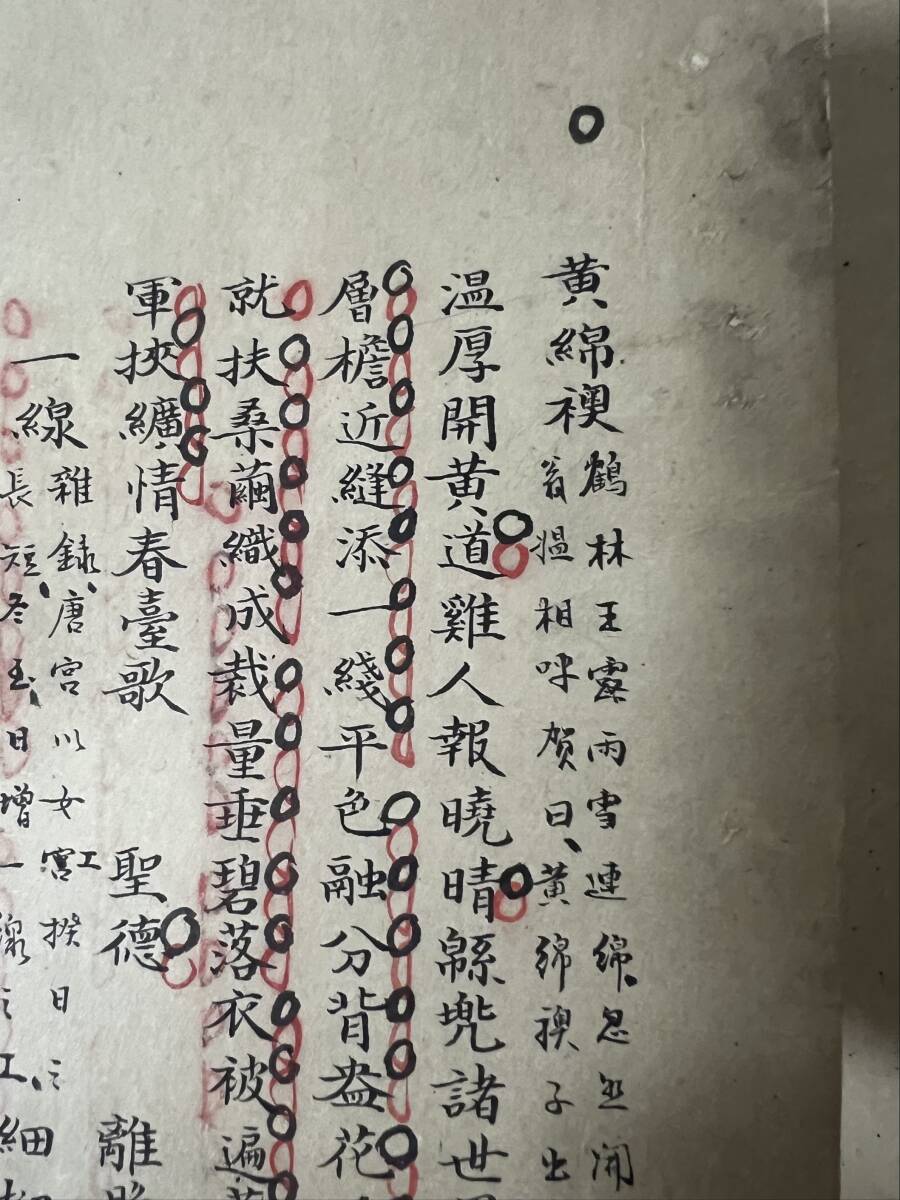 黄綿襖
鶴林玉露雨雪連綿忽然開
翁媼相呼賀曰黄綿襖子出
温厚開黄道雞人報曉晴緜兠諸世
層檐近縫添一綫平色融分背盎花
就扶桑繭織成裁量垂碧落衣被遍
軍挾纊情春臺歌 聖德 離
一線
雜録唐宫以女工揆日之
長短冬至日增一線之工
細